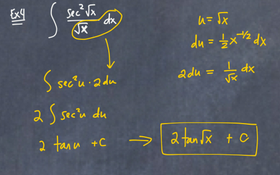 Ex4 ∫ sec²√x / √x dx
u = √x
du = ½ x^(-1/2) dx
2du = 1/√x dx
∫ sec²u · 2du
2 ∫ sec²u du
2 tan u + C → 2 tan√x + C